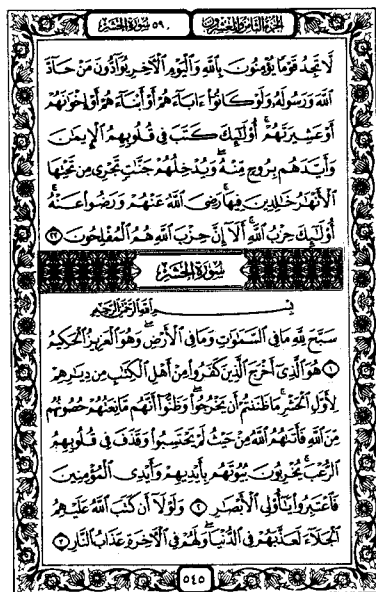 الجزء الثامن والعشرون ٥٩ سورة الحشر
لَّا تَجِدُ قَوْمًا يُؤْمِنُونَ بِاللَّهِ وَالْيَوْمِ الْآخِرِ يُوَآدُّونَ مَنْ حَآدَّ
اللَّهَ وَرَسُولَهُ وَلَوْ كَانُوٓا۟ ءَابَآءَهُمْ أَوْ أَبْنَآءَهُمْ أَوْ إِخْوَٰنَهُمْ
أَوْ عَشِيرَتَهُمْ أُو۟لَٰٓئِكَ كَتَبَ فِى قُلُوبِهِمُ الْإِيمَٰنَ
وَأَيَّدَهُم بِرُوحٍ مِّنْهُ وَيُدْخِلُهُمْ جَنَّٰتٍ تَجْرِى مِن تَحْتِهَا
الْأَنْهَٰرُ خَٰلِدِينَ فِيهَا رَضِىَ اللَّهُ عَنْهُمْ وَرَضُوا۟ عَنْهُ
أُو۟لَٰٓئِكَ حِزْبُ اللَّهِ أَلَآ إِنَّ حِزْبَ اللَّهِ هُمُ الْمُفْلِحُونَ ٢٢
سُورَةُ الحَشْر
بِسْمِ اللَّهِ الرَّحْمَٰنِ الرَّحِيمِ
سَبَّحَ لِلَّهِ مَا فِى السَّمَٰوَٰتِ وَمَا فِى الْأَرْضِ وَهُوَ الْعَزِيزُ الْحَكِيمُ
١ هُوَ الَّذِىٓ أَخْرَجَ الَّذِينَ كَفَرُوا۟ مِنْ أَهْلِ الْكِتَٰبِ مِن دِيَٰرِهِمْ
لِأَوَّلِ الْحَشْرِ مَا ظَنَنتُمْ أَن يَخْرُجُوا۟ وَظَنُّوٓا۟ أَنَّهُم مَّانِعَتُهُمْ حُصُونُهُم
مِّنَ اللَّهِ فَأَتَىٰهُمُ اللَّهُ مِنْ حَيْثُ لَمْ يَحْتَسِبُوا۟ وَقَذَفَ فِى قُلُوبِهِمُ
الرُّعْبَ يُخْرِبُونَ بُيُوتَهُم بِأَيْدِيهِمْ وَأَيْدِى الْمُؤْمِنِينَ
فَاعْتَبِرُوا۟ يَٰٓأُو۟لِى الْأَبْصَٰرِ ٢ وَلَوْلَآ أَن كَتَبَ اللَّهُ عَلَيْهِمُ
الْجَلَآءَ لَعَذَّبَهُمْ فِى الدُّنْيَا وَلَهُمْ فِى الْآخِرَةِ عَذَابُ النَّارِ ٣
٥٤٥